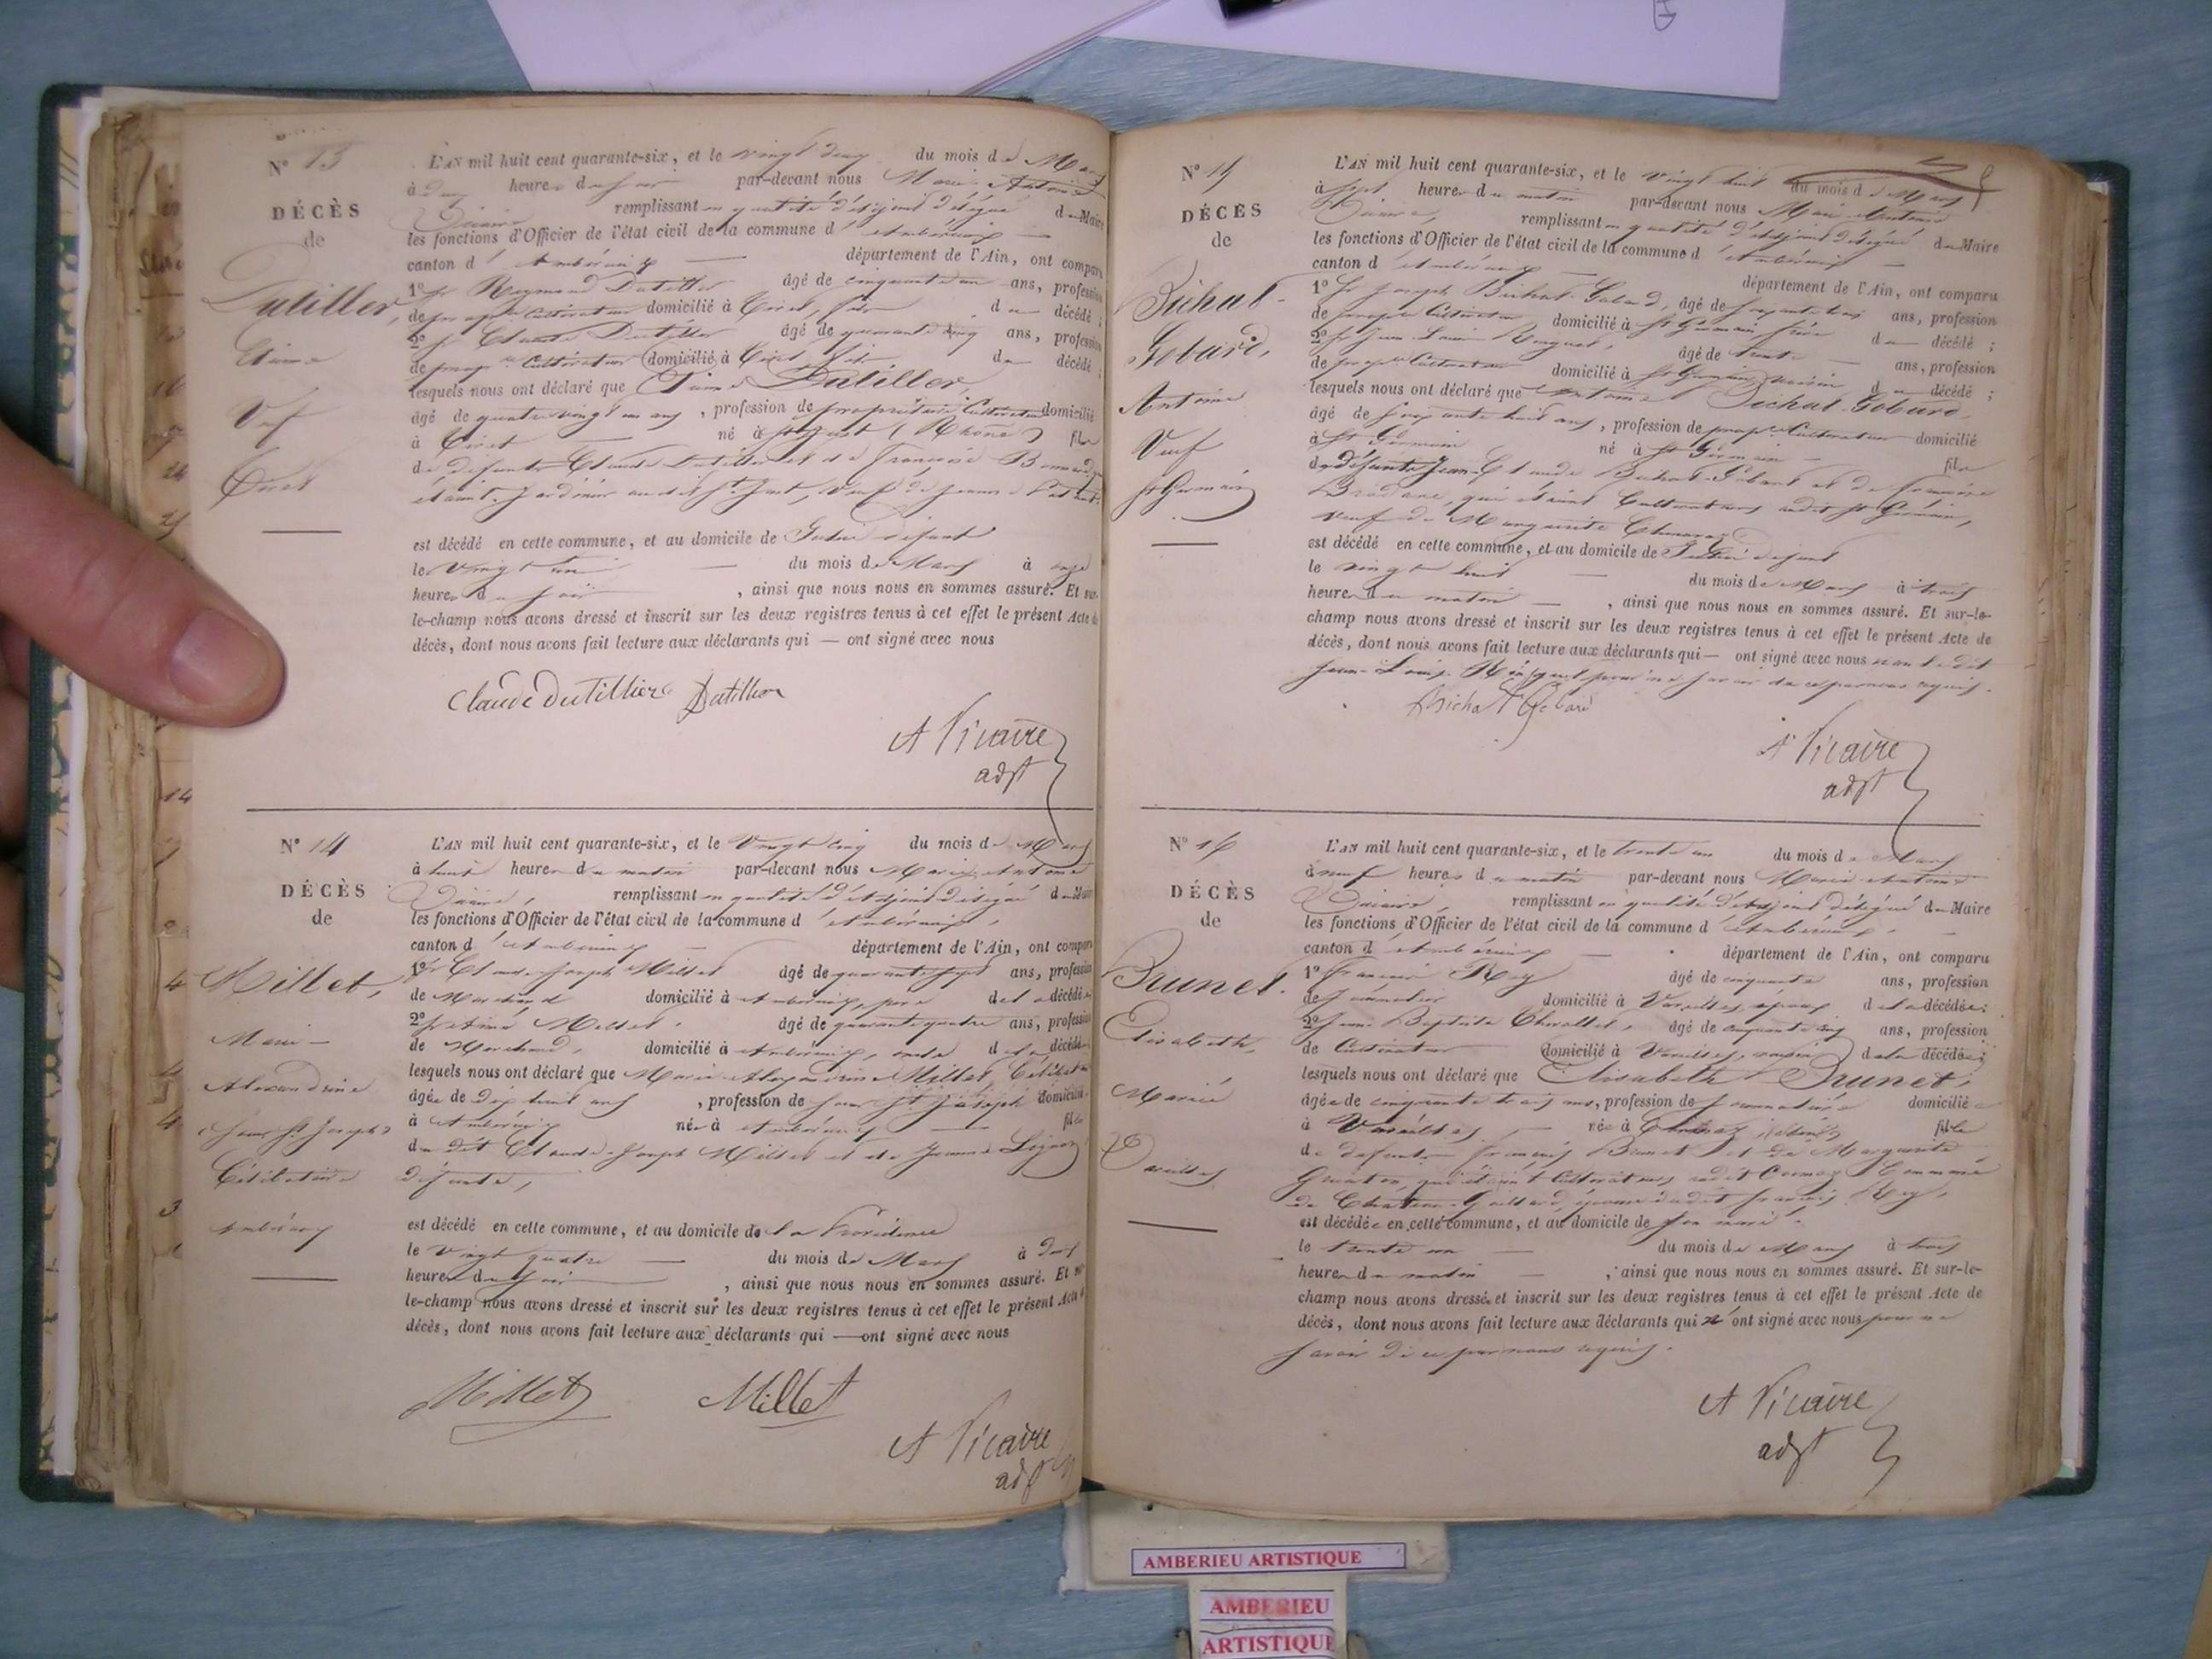 N° 13
DÉCÈS
de
Dutiller,
Etienne
Veuf
L'AN mil huit cent quarante-six, et le vingt deux du mois de Mars
à deux heures du soir par-devant nous Marie Antoine
Vicaire remplissant en qualité d'adjoint délégué du Maire
les fonctions d'Officier de l'état civil de la commune d'Ambérieux
canton d'Ambérieux département de l'Ain, ont comparu
1° Sr Reymond Dutiller âgé de cinquante un ans, profession
de propre cultivateur domicilié à fils du décédé ;
2° Sr Claude Dutiller âgé de quarante cinq ans, profession
de propre cultivateur domicilié à fils du décédé ;
lesquels nous ont déclaré que Etienne Dutiller,
âgé de quatre vingt un ans, profession de propriétaire cultivateur domicilié
à né à St Just (Rhône) fils
de défunts Claude Dutiller et de Françoise
étaient jardiniers audit St Just, veuf de Jeanne
est décédé en cette commune, et au domicile de lui défunt
le vingt un du mois de Mars à onze
heures du soir, ainsi que nous nous en sommes assuré. Et sur-
le-champ nous avons dressé et inscrit sur les deux registres tenus à cet effet le présent Acte de
décès, dont nous avons fait lecture aux déclarants qui — ont signé avec nous
Claude Dutillier Dutiller
A Vicaire
adjt
N° 14
DÉCÈS
de
Millet,
Marie
Alexandrine
(Soeur St Joseph)
Célibataire
Ambérieux
L'AN mil huit cent quarante-six, et le Vingt cinq du mois de Mars
à huit heures du matin par-devant nous Marie Antoine
Vicaire, remplissant en qualité d'adjoint délégué du Maire
les fonctions d'Officier de l'état civil de la commune d'Ambérieux,
canton d'Ambérieux département de l'Ain, ont comparu
1° Sr Claude Joseph Millet âgé de quarante sept ans, profession
de Marchand domicilié à Ambérieux, père de la décédée
2° Millet âgé de quarante quatre ans, profession
de Marchand, domicilié à Ambérieux, oncle de la décédée
lesquels nous ont déclaré que Marie Alexandrine Millet Célibataire
âgée de dix huit ans, profession de soeur St Joseph domiciliée
à Ambérieux née à Ambérieux fille
du dit Claude Joseph Millet et de Jeanne
défunte,
est décédé en cette commune, et au domicile de la Providence
le vingt quatre du mois de Mars à
heures du soir, ainsi que nous nous en sommes assuré. Et sur-
le-champ nous avons dressé et inscrit sur les deux registres tenus à cet effet le présent Acte de
décès, dont nous avons fait lecture aux déclarants qui — ont signé avec nous
Millet Millet
A Vicaire
adjt
N° 15
DÉCÈS
de
Bichat-
Gobard,
Antoine
Veuf
St Germain
L'AN mil huit cent quarante-six, et le vingt huit du mois de Mars
à sept heures du matin par-devant nous Marie Antoine
Vicaire, remplissant en qualité d'adjoint délégué du Maire
les fonctions d'Officier de l'état civil de la commune d'Ambérieux
canton d'Ambérieux département de l'Ain, ont comparu
1° Sr Joseph Bichat-Gobard, âgé de soixante trois ans, profession
de propre cultivateur domicilié à St Germain frère du décédé ;
2° Sr Jean Louis âgé de trente ans, profession
de propre cultivateur domicilié à St Germain, voisin du décédé ;
lesquels nous ont déclaré que Antoine Bichat-Gobard
âgé de soixante huit ans, profession de propre cultivateur domicilié
à St Germain né à St Germain fils
de défunts Jean-Claude Bichat-Gobard et de Françoise
qui étaient cultivateurs audit St Germain,
veuf de Marguerite
est décédé en cette commune, et au domicile de lui défunt
le vingt huit du mois de Mars à trois
heures du matin, ainsi que nous nous en sommes assuré. Et sur-le-
champ nous avons dressé et inscrit sur les deux registres tenus à cet effet le présent Acte de
décès, dont nous avons fait lecture aux déclarants qui — ont signé avec nous non ledit
Jean-Louis pour ne savoir de ce par nous requis.
Bichat Gobard
A Vicaire
adjt
N° 16
DÉCÈS
de
Brunet.
Elisabeth,
Mariée
Vareilles
L'AN mil huit cent quarante-six, et le trente un du mois de Mars
à neuf heures du matin par-devant nous Marie Antoine
Vicaire, remplissant en qualité d'adjoint délégué du Maire
les fonctions d'Officier de l'état civil de la commune d'Ambérieux,
canton d'Ambérieux département de l'Ain, ont comparu
1° François Rey âgé de cinquante ans, profession
de journalier domicilié à Vareilles, époux de la décédée ;
2° Jean Baptiste âgé de cinquante six ans, profession
de Cultivateur domicilié à Vareilles, voisin de la décédée ;
lesquels nous ont déclaré que Elisabeth Brunet,
âgée de cinquante trois ans, profession de journalière domiciliée
à Vareilles née à fille
de défunts François Brunet et de Marguerite
qui étaient cultivateurs audit Cormoz Commune
de Chateau-Gaillard, épouse dudit François Rey,
est décédée en cette commune, et au domicile de son mari
le trente un du mois de Mars à trois
heures du matin, ainsi que nous nous en sommes assuré. Et sur-le-
champ nous avons dressé et inscrit sur les deux registres tenus à cet effet le présent Acte de
décès, dont nous avons fait lecture aux déclarants qui n'ont signé avec nous pour ne
savoir de ce par nous requis.
A Vicaire
adjt
AMBERIEU ARTISTIQUE
AMBERIEU
ARTISTIQUE